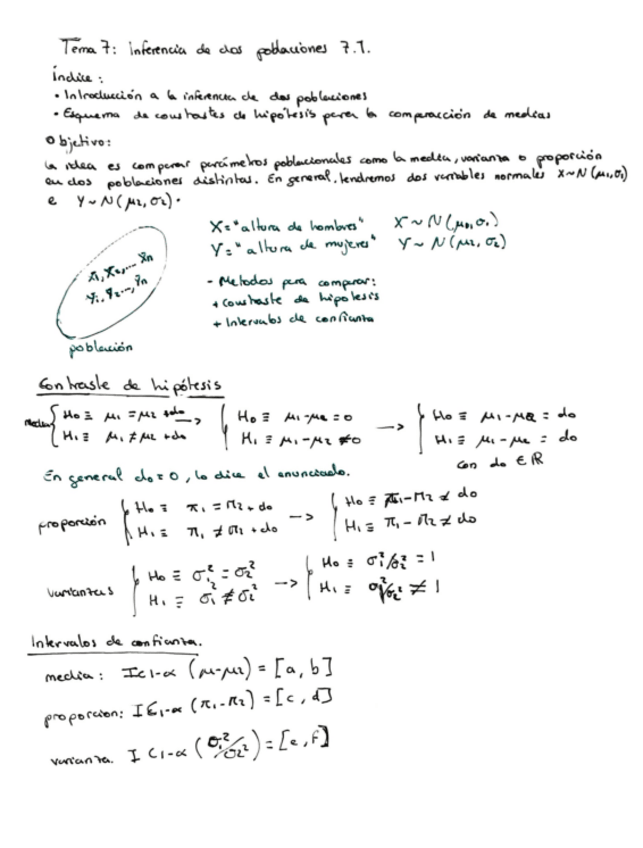 Tema 7: inferencia de dos poblaciones 7.1.
Índice:
• Introducción a la inferencia de dos poblaciones
• Esquema de constrastes de hipótesis para la comparacción de medias
Objetivo:
la idea es comparar parámetros poblacionales como la media, varianza o proporción
en dos poblaciones distintas. En general, tendremos dos variables normales X~N(μ1,σ1)
e Y~N(μ2,σ2).
X="altura de hombres" X~N(μ1,σ1)
Y="altura de mujeres" Y~N(μ2,σ2)
x1, x2,... xn
y1, y2..., yn
- Metodos para comparar:
+ Constraste de hipotesis
+ Intervalos de confianza
población
Contraste de hipótesis
medias { H0 ≡ μ1 = μ2 + do → { H0 ≡ μ1-μ2 = 0 → { H0 ≡ μ1-μ2 = do
H1 ≡ μ1 ≠ μ2 + do H1 ≡ μ1-μ2 ≠ 0 H1 ≡ μ1-μ2 = do
con do ∈ ℝ
En general do = 0, lo dice el enunciado.
proporción { H0 ≡ π1 = π2 + do → { H0 ≡ π1-π2 ≠ do
H1 ≡ π1 ≠ π2 + do H1 ≡ π1-π2 ≠ do
varianzas { H0 ≡ σ1² = σ2² → { H0 ≡ σ1²/σ2² = 1
H1 ≡ σ1² ≠ σ2² H1 ≡ σ1²/σ2² ≠ 1
Intervalos de confianza.
media: IC1-α (μ-μ2) = [a, b]
proporcion: IC1-α (π1-π2) = [c, d]
varianza. IC1-α (σ1²/σ2²) = [e, f]